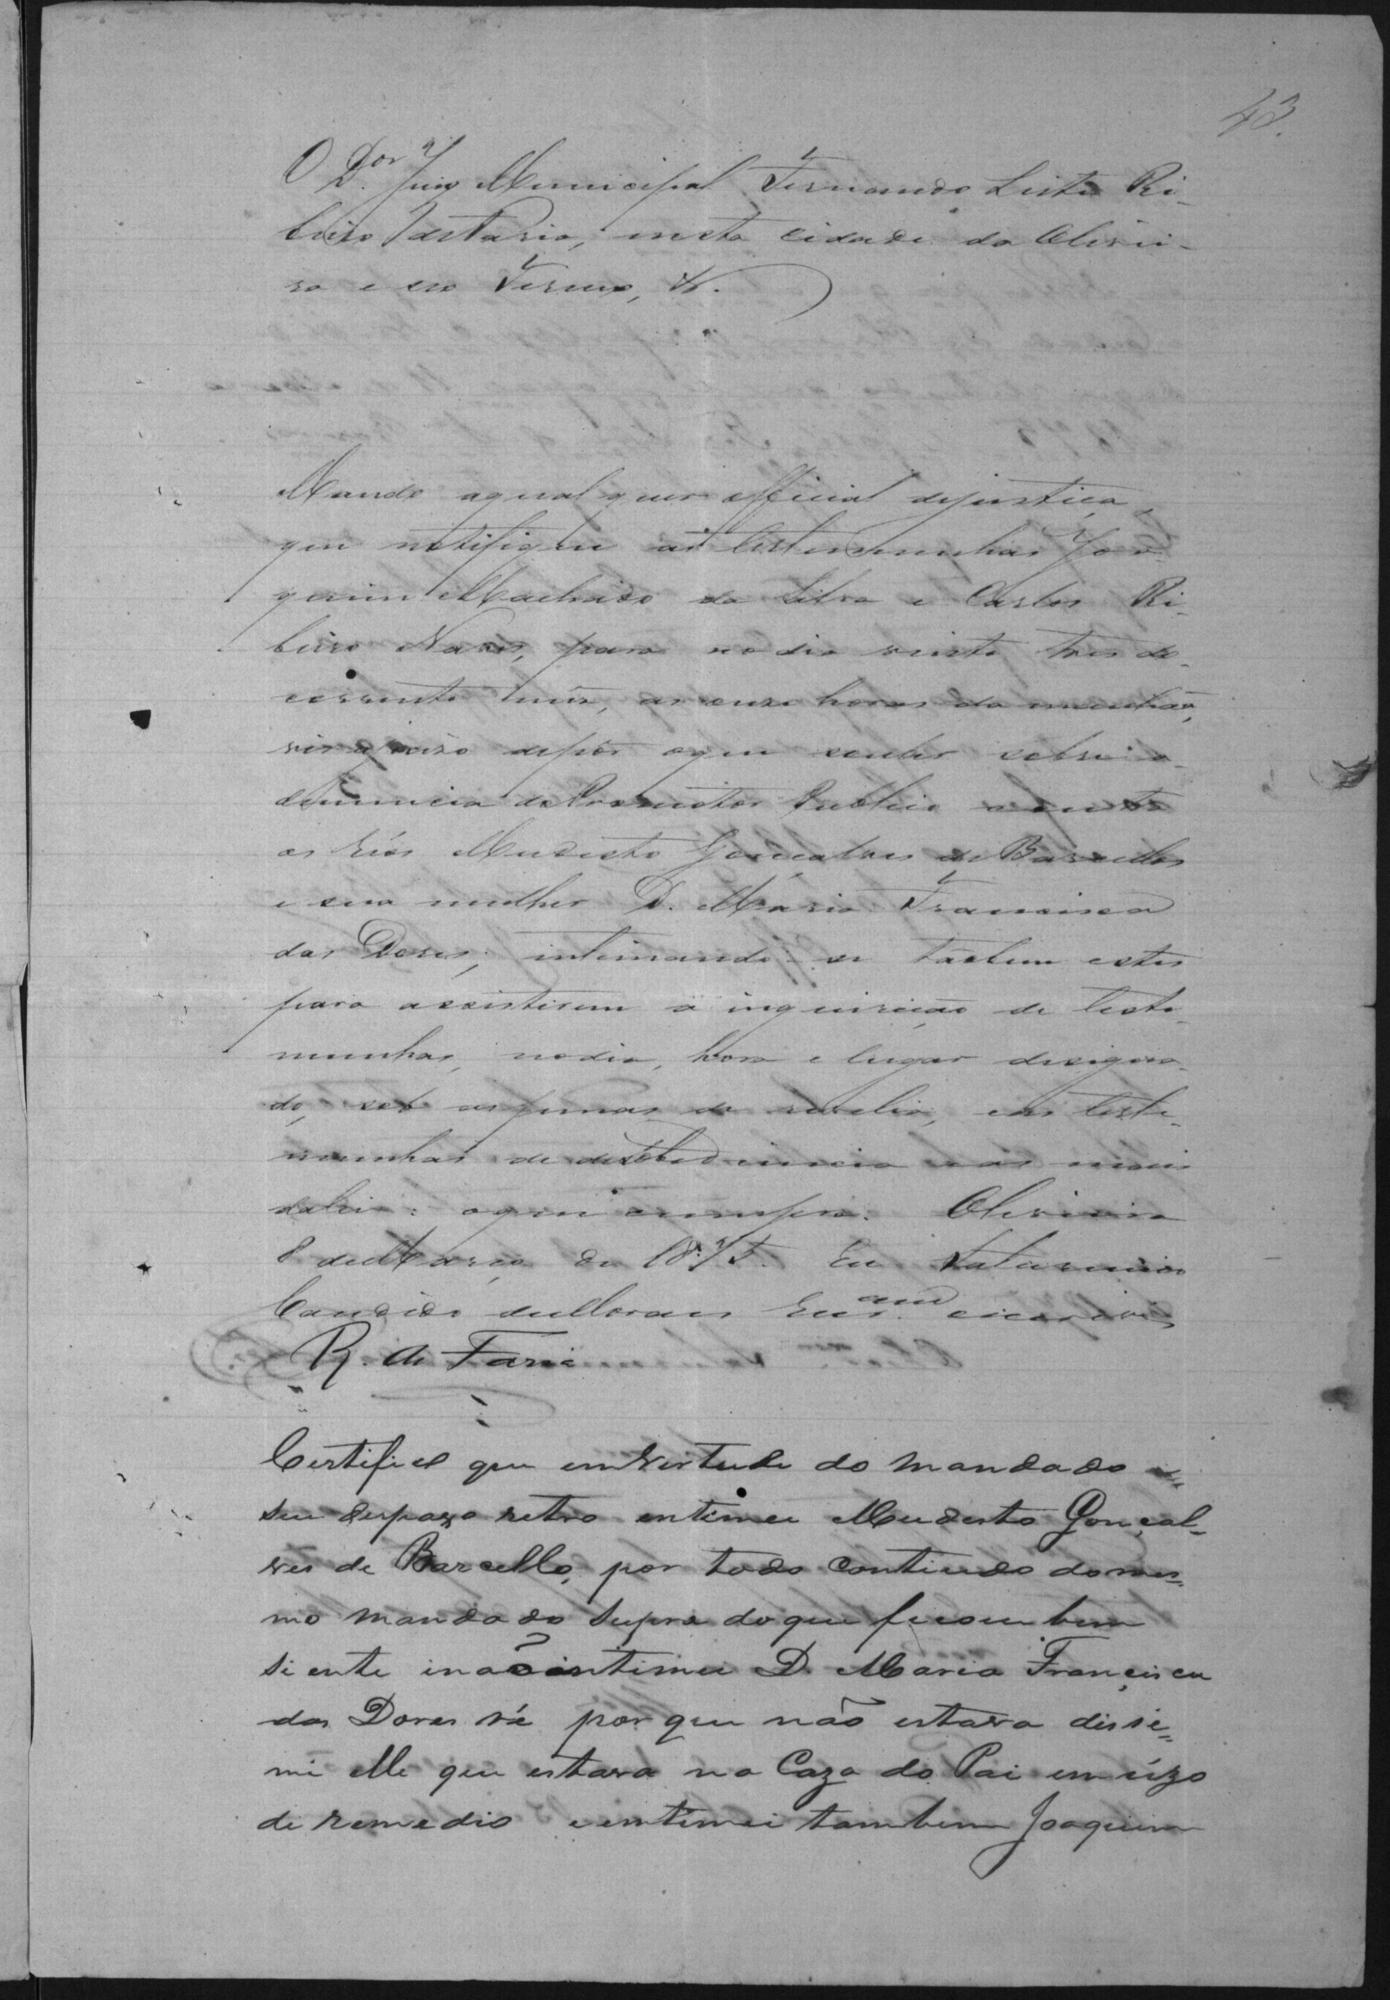 43.
O Dor Juiz Municipal Fernando Leite Ri-
beiro de Faria, nesta cidade da Olivei-
ra e seo Termo, &.
Mando aqualquer official dejustiça,
que notifique as testemunhas Joa-
quim Machado da Silva e Carlos Ri-
beiro Naves, para no dia vinte tres do
corrente mes, as onze horas da manhãa,
vir a juizo depôr oque souber sobre a
denuncia do Promotor Publico contra
os réos Mudesto Gonçalves de Barcellos
e sua mulher D. Maria Francisca
das Dores; intimando-se tãobem estes
para assistirem a inquirição de teste-
munhas, nodia, hora e lugar designa-
do, sob aspenas de revelia, e as teste-
munhas de desobediencia e as mais
dalei: oque cumpra. Oliveira
8 deMarço de 1875. Eu Saturnino
Candido deMoraes escrivão
R. de Faria
Certifico que emvertude do mandado e
seu despaxo retro entimei Mudesto Gonçal-
ves de Barcello, por todo contiudo domes-
mo mandado supra doque ficou bem
siente inão intimei D. Maria Francisca
das Dores ré porque não estava disse-
mi elle que estava na Caza do Pai em úzo
de remedio e entimei tambem Joaquim